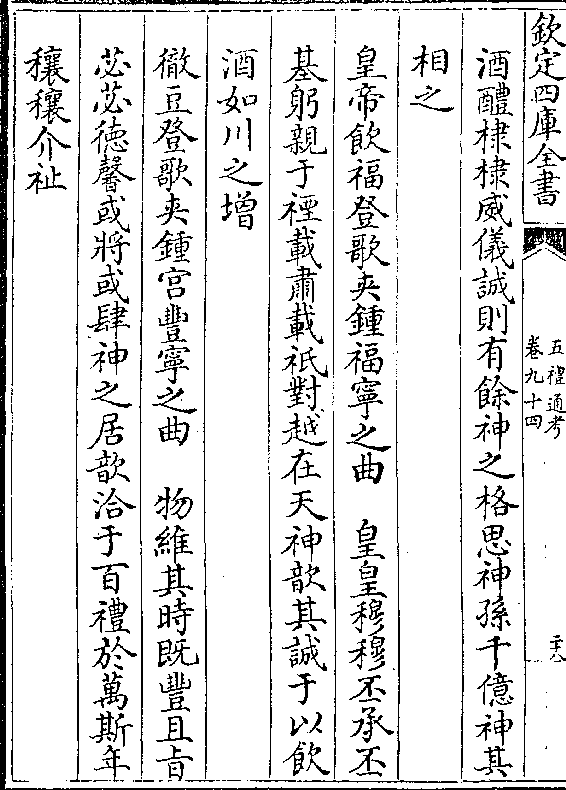 欽定四庫全書
五禮通考
卷九十四
二十八
酒醴棣棣威儀誠則有餘神之格思神孫千億神其
相之
皇帝飲福登歌夾鍾福寧之曲　皇皇穆穆丕承丕
基躬親于禋載肅載祗對越在天神歆其誠于以飲
酒如川之增
徹豆登歌夾鍾宫豐寧之曲　物維其時既豐且旨
苾苾徳馨或將或肆神之居歆洽于百禮於萬斯年
穰穰介祉